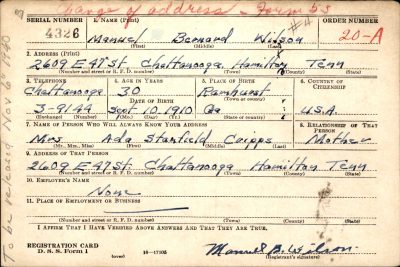 Change of address - Form 53
SERIAL NUMBER
4326
1. NAME (Print)
Manuel Bernard Wilson
(First) (Middle) (Last)
ORDER NUMBER
20-A
2. ADDRESS (Print)
2609 E 47 St. Chattanooga, Hamilton Tenn
(Number and street or R. F. D. number) (Town) (County) (State)
3. TELEPHONE
Chattanooga
3-9144
(Exchange) (Number)
4. AGE IN YEARS
30
DATE OF BIRTH
Sept. 10, 1910
(Mo.) (Day) (Yr.)
5. PLACE OF BIRTH
Ramhurst
(Town or county)
Ga
(State or country)
6. COUNTRY OF CITIZENSHIP
U.S.A.
7. NAME OF PERSON WHO WILL ALWAYS KNOW YOUR ADDRESS
Mrs Ada Stanfield
(Mr., Mrs., Miss) (First) (Middle) (Last)
8. RELATIONSHIP OF THAT PERSON
Mother
9. ADDRESS OF THAT PERSON
2609 E 47 St. Chattanooga Hamilton Tenn
(Number and street or R. F. D. number) (Town) (County) (State)
10. EMPLOYER'S NAME
None
11. PLACE OF EMPLOYMENT OR BUSINESS
(Number and street or R. F. D. number) (Town) (County) (State)
I AFFIRM THAT I HAVE VERIFIED ABOVE ANSWERS AND THAT THEY ARE TRUE.
REGISTRATION CARD
D. S. S. Form 1
(over)
16-17105
Manuel B. Wilson
(Registrant's signature)